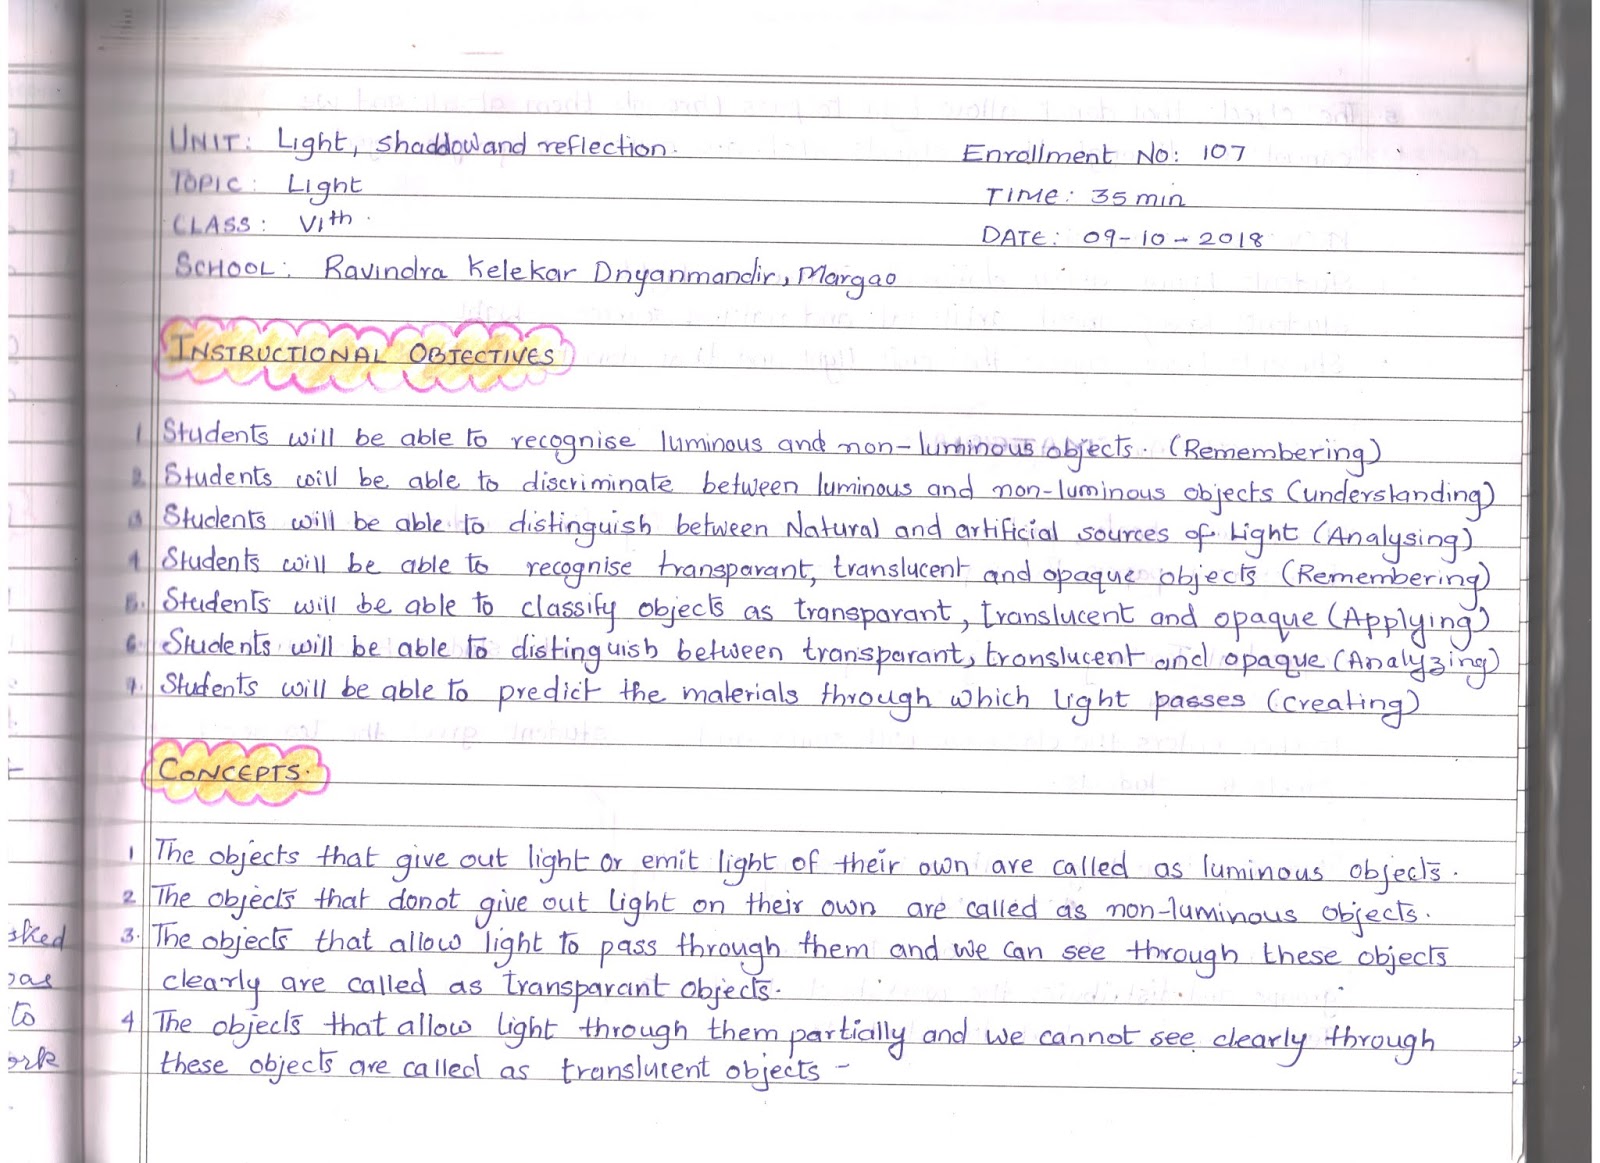 UNIT: Light, shaddow and reflection.
Enrollment No: 107
TOPIC: Light
TIME: 35 min
CLASS: VIth.
DATE: 09-10-2018
SCHOOL: Ravindra Kelekar Dnyanmandir, Margao
INSTRUCTIONAL OBJECTIVES
1. Students will be able to recognise luminous and non-luminous objects. (Remembering)
2. Students will be able to discriminate between luminous and non-luminous objects (understanding)
3. Students will be able to distinguish between Natural and artificial sources of Light (Analysing)
4. Students will be able to recognise transparant, translucent and opaque objects (Remembering)
5. Students will be able to classify objects as transparant, translucent and opaque (Applying)
6. Students will be able to distinguish between transparant, translucent and opaque (Analyzing)
7. Students will be able to predict the materials through which light passes (creating)
CONCEPTS.
1 The objects that give out light or emit light of their own are called as luminous objects.
2 The objects that donot give out light on their own are called as non-luminous objects.
3. The objects that allow light to pass through them and we can see through these objects
clearly are called as transparant objects.
4 The objects that allow light through them partially and we cannot see clearly through
these objects are called as translucent objects -
sked
as
to
ork